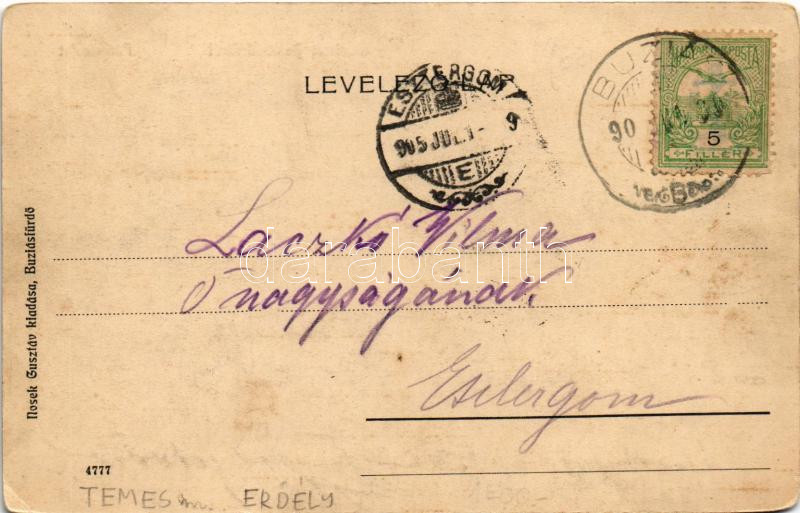 LEVELEZŐ-LAP
ESZTERGOM
905 JUL. 1
9
E
BUZIÁS
90
B
MAGYAR KIR. POSTA
5
FILLÉR
Laczkó Vilma
Ő nagyságának
Esztergom
darabanth
Nosek Gusztáv kiadása, Buziásfürdő
4777
TEMES m. ERDÉLY